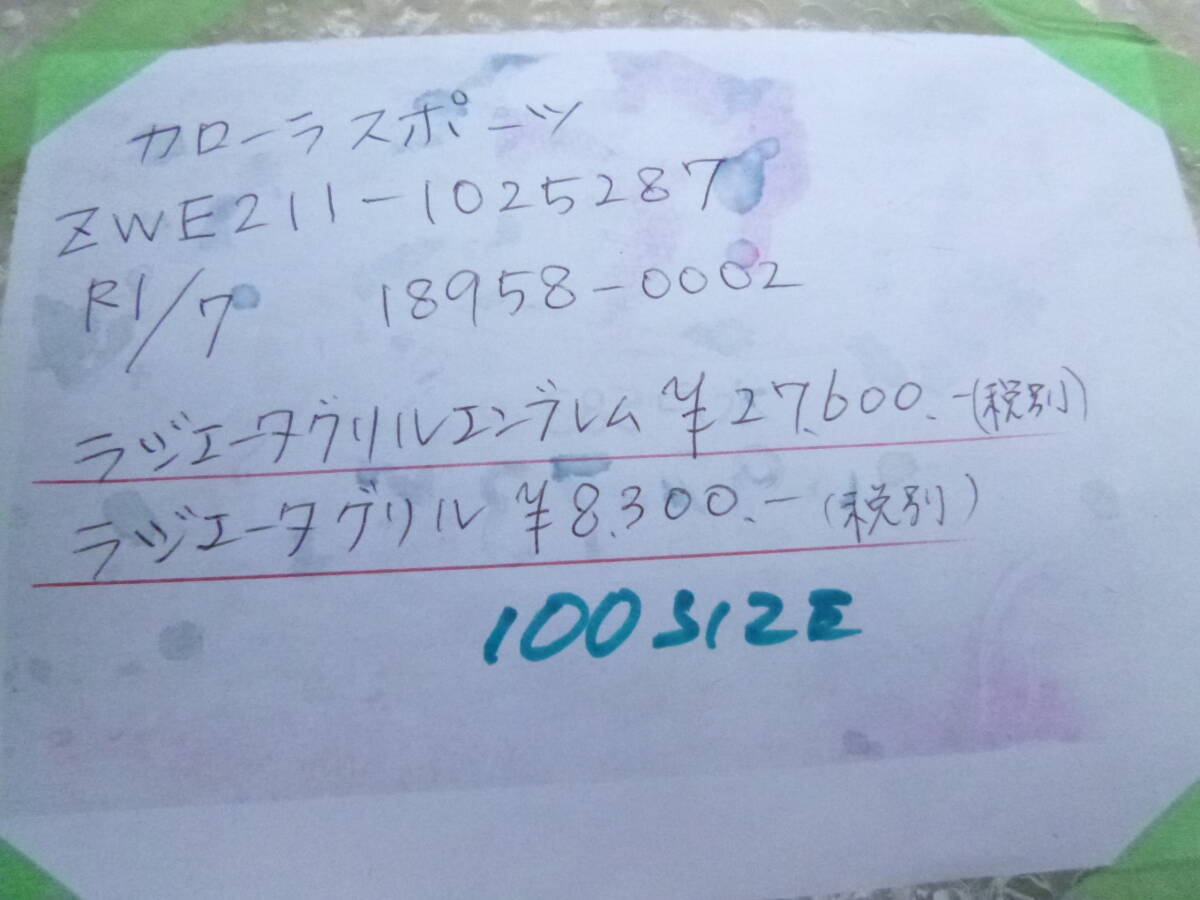 カローラスポーツ
ZWE211-1025287
R1/7 18958-0002
ラジエータグリルエンブレム ¥27,600.-(税別)
ラジエータグリル ¥8,300.-(税別)
100SIZE